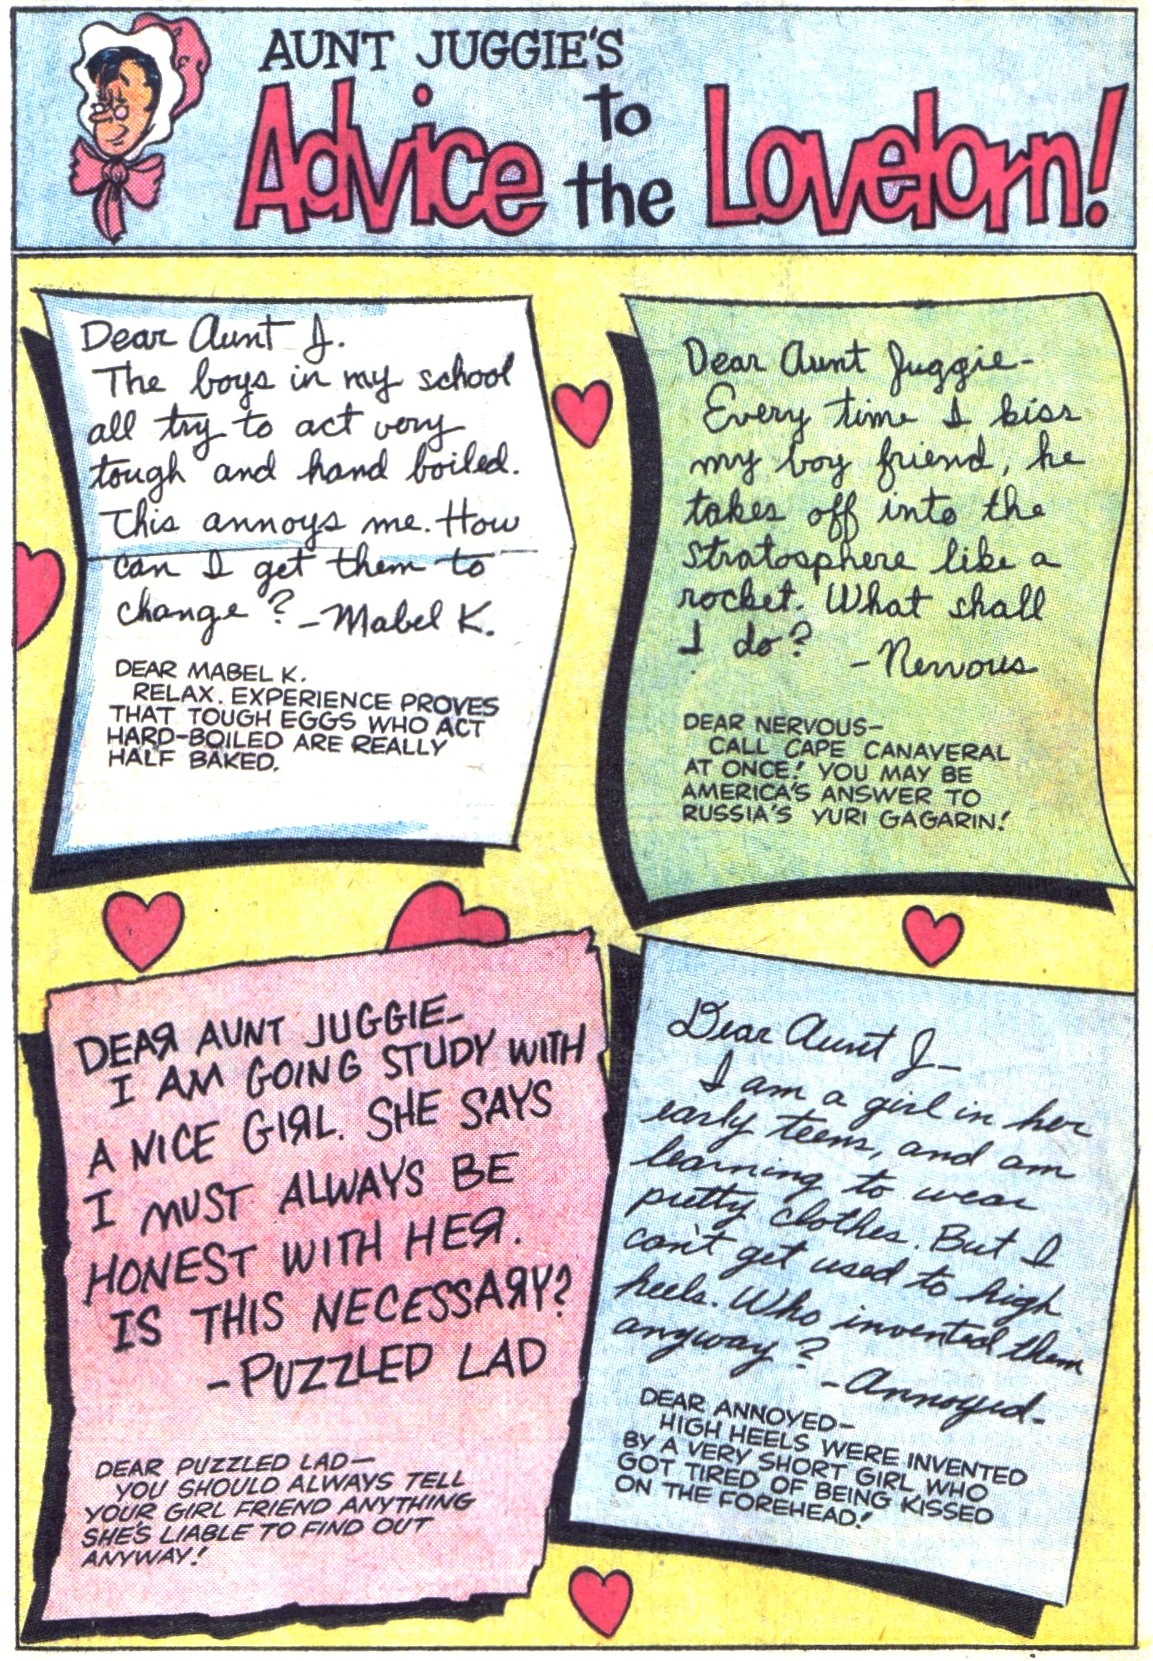 AUNT JUGGIE'S
Advice to the Lovelorn!
Dear Aunt J.
The boys in my school
all try to act very
tough and hand boiled.
This annoys me. How
can I get them to
change? - Mabel K.
DEAR MABEL K.
RELAX. EXPERIENCE PROVES
THAT TOUGH EGGS WHO ACT
HARD-BOILED ARE REALLY
HALF BAKED.
Dear Aunt Juggie-
Every time I kiss
my boy friend, he
takes off into the
stratosphere like a
rocket. What shall
I do?
- Nervous
DEAR NERVOUS-
CALL CAPE CANAVERAL
AT ONCE! YOU MAY BE
AMERICA'S ANSWER TO
RUSSIA'S YURI GAGARIN!
DEAR AUNT JUGGIE-
I AM GOING STUDY WITH
A NICE GIRL. SHE SAYS
I MUST ALWAYS BE
HONEST WITH HER.
IS THIS NECESSARY?
- PUZZLED LAD
DEAR PUZZLED LAD-
YOU SHOULD ALWAYS TELL
YOUR GIRL FRIEND ANYTHING
SHE'S LIABLE TO FIND OUT
ANYWAY!
Dear Aunt J-
I am a girl in her
early teens, and am
learning to wear
pretty clothes. But I
can't get used to high
heels. Who invented them
anyway?
- Annoyed-
DEAR ANNOYED-
HIGH HEELS WERE INVENTED
BY A VERY SHORT GIRL WHO
GOT TIRED OF BEING KISSED
ON THE FOREHEAD!